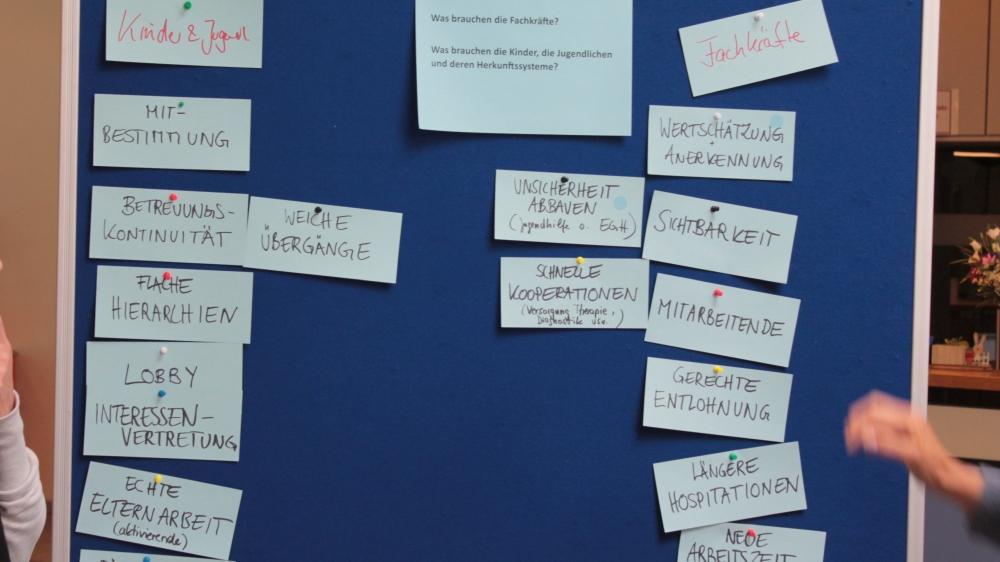 Kinder & Jugendl
MIT-
BESTIMMUNG
BETREUUNGS-
KONTINUITÄT
WEICHE
ÜBERGÄNGE
FLACHE
HIERARCHIEN
LOBBY
INTERESSEN-
VERTRETUNG
ECHTE
ELTERNARBEIT
(aktivierende)
Was brauchen die Fachkräfte?
Was brauchen die Kinder, die Jugendlichen
und deren Herkunftssysteme?
Fachkräfte
WERTSCHÄTZUNG
+
ANERKENNUNG
UNSICHERHEIT
ABBAUEN
(Jugendhilfe o. EGH)
SICHTBARKEIT
SCHNELLE
KOOPERATIONEN
(Versorgung Therapie,
Diagnostik usw. )
MITARBEITENDE
GERECHTE
ENTLOHNUNG
LÄNGERE
HOSPITATIONEN
NEUE
ARBEITSZEIT